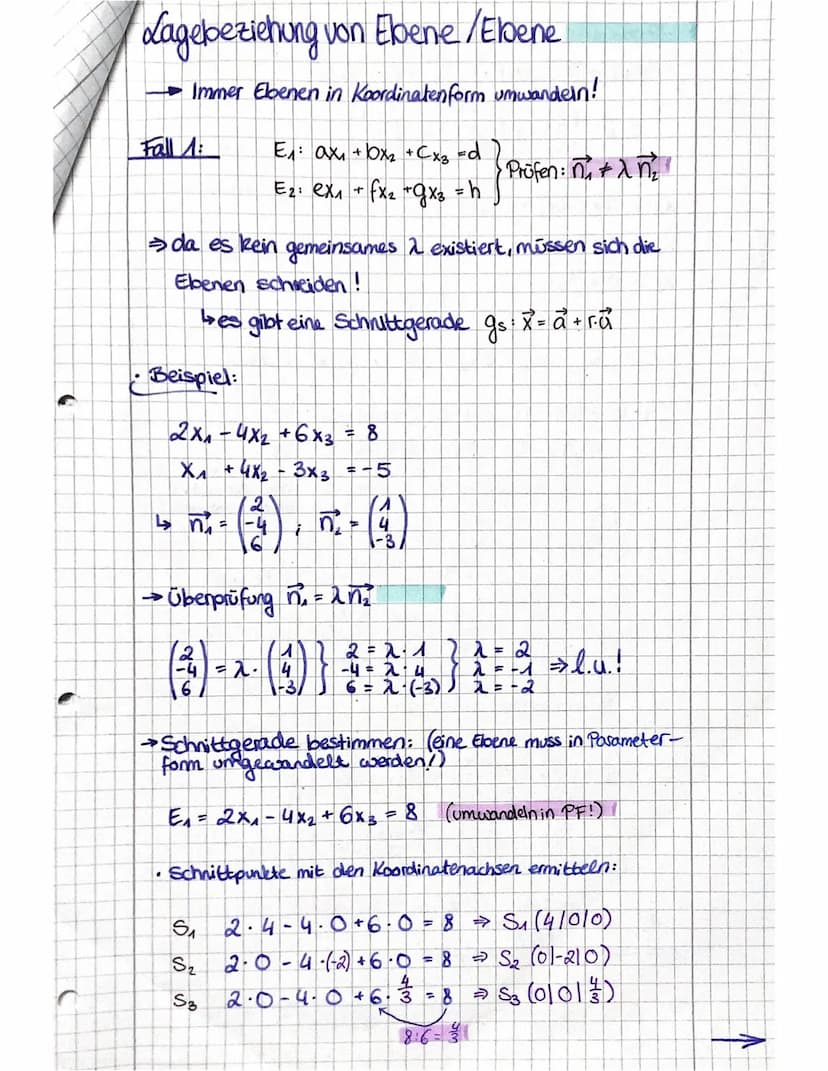 Lagebeziehung von Ebene/Ebene
→ Immer Ebenen in Koordinatenform umwandeln!
Fall 1: E₁: ax₁ + bx₂ + cx₃ = d } Prüfen: n₁⃗ ≠ λ n₂⃗
E₂: ex₁ + fx₂ + gx₃ = h
⇒ da es kein gemeinsames λ existiert, müssen sich die
Ebenen schneiden!
↳ es gibt eine Schnittgerade gs: x⃗ = a⃗ + r·u⃗
· Beispiel:
2x₁ - 4x₂ + 6x₃ = 8
x₁ + 4x₂ - 3x₃ = -5
↳ n₁⃗ = (2 -4 6) ; n₂⃗ = (1 4 -3)
→ Überprüfung n₁⃗ = λ n₂⃗
(2 -4 6) = λ · (1 4 -3) } 2 = λ · 1 } λ = 2
-4 = λ · 4 λ = -1 ⇒ l.u.!
6 = λ · (-3) λ = -2
→ Schnittgerade bestimmen: (eine Ebene muss in Parameter-
form umgewandelt werden!)
E₁ = 2x₁ - 4x₂ + 6x₃ = 8 (umwandeln in PF!)
· Schnittpunkte mit den Koordinatenachsen ermitteln:
S₁ 2·4 - 4·0 + 6·0 = 8 ⇒ S₁ (4/0/0)
S₂ 2·0 - 4·(-2) + 6·0 = 8 ⇒ S₂ (0/-2/0)
S₃ 2·0 - 4·0 + 6·4/3 = 8 ⇒ S₃ (0/0/4/3)
8:6 = 4/3
→